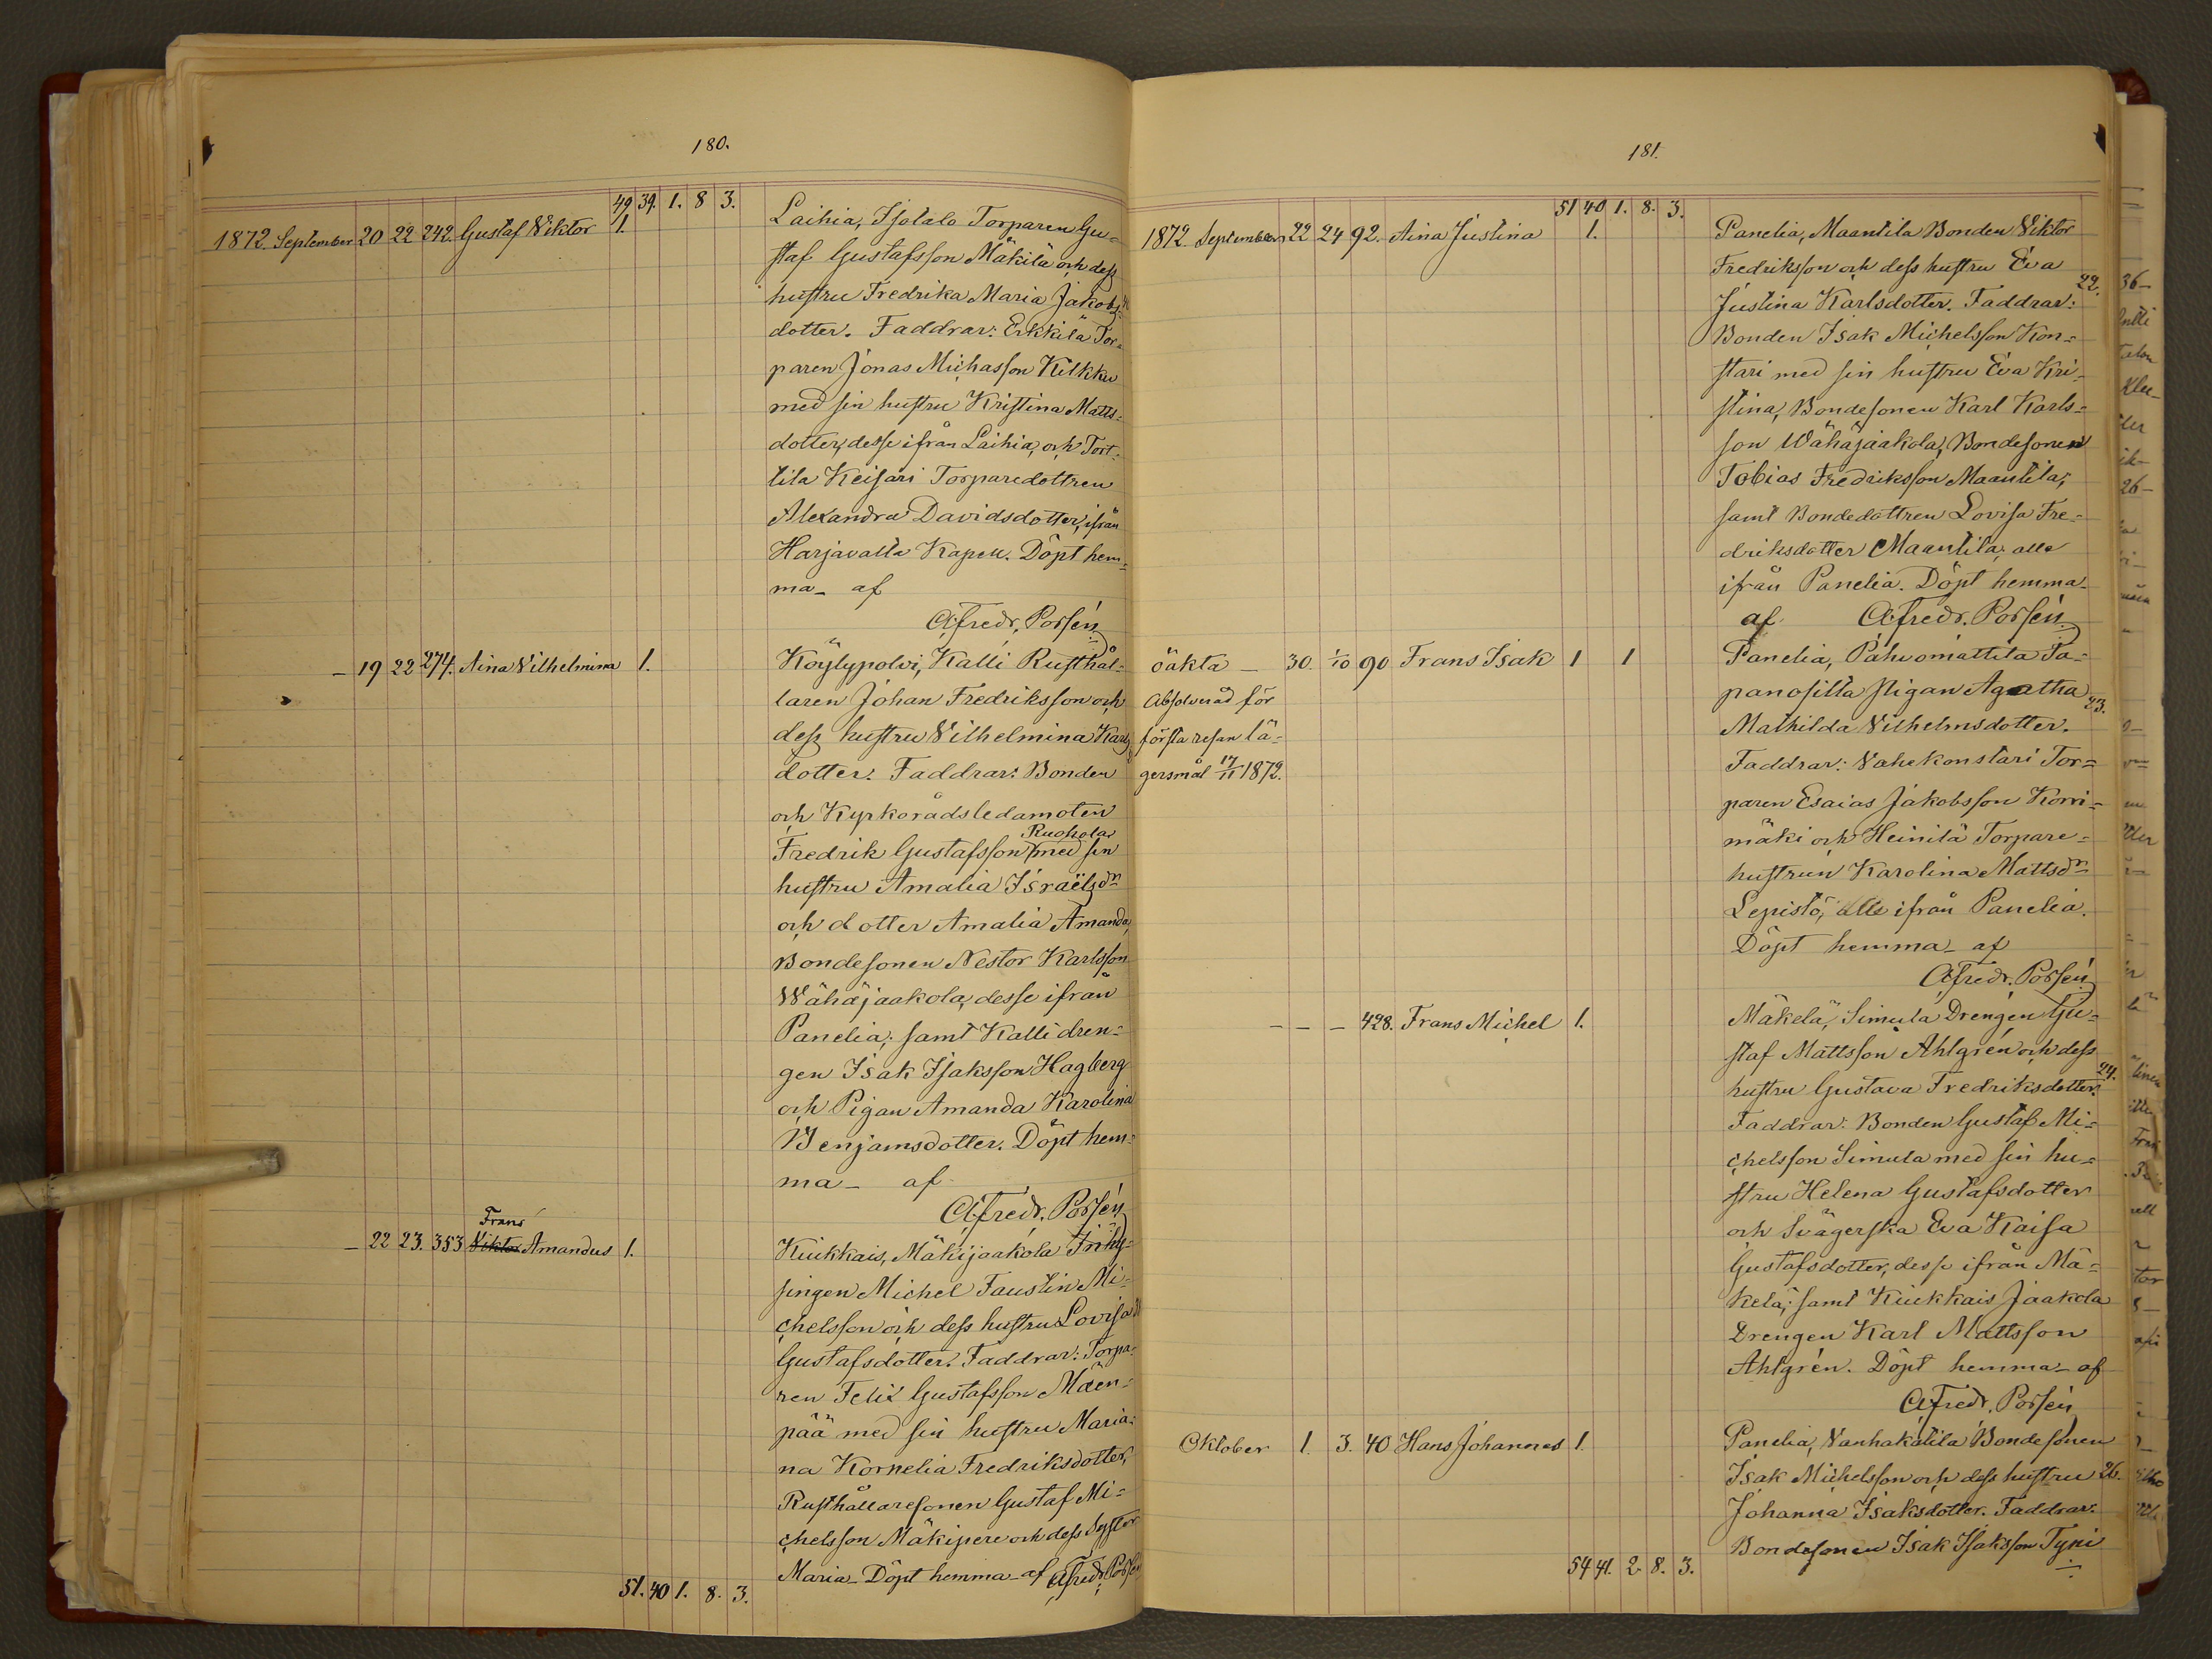 180.
49 39. 1. 8 3.
1872. September 20 22 242. Gustaf Viktor 1.
Laihia, Isotalo Torparen Gu=
staf Gustafsson Mäkilä och dess
hustru Fredrika Maria Jakobs=
dotter. Faddrar: Erkkilä Tor=
paren Jonas Michasson Kilkku
med sin hustru Kristina Matts=
dotter, desse ifrån Laihia, och Tort=
tila Keisari Torparedottren
Alexandra Davidsdotter, ifrån
Harjavalta Kapell. Döpt hem=
ma_ af
Alfredr. Porsén
_ 19 22 274. Aina Vilhelmina 1.
Köylypolvi, Kalli Rusthål=
laren Johan Fredriksson och
dess hustru Vilhelmina Karls
dotter. Faddrar: Bonden
och Kyrkorådsledamoten
Ruohola
Fredrik Gustafsson med sin
hustru Amalia Israëlsdn
och dotter Amalia Amanda,
Bondesonen Nestor Karlsson
Wähäjaakola, desse ifrån
Panelia; samt Kalli dren=
gen Isak Isaksson Hagberg
och Pigan Amanda Karolina
Benjamsdotter. Döpt hem=
ma_ af
Alfredr. Porsén
Frans
_ 22 23. 353 Viktor Amandus 1.
Kiukkais, Mäkijaakola
singen Michel Faustin Mi=
chelsson och dess hustru Lovisa
Gustafsdotter. Faddrar: Torpa=
ren Felix Gustafsson Mäen=
pää med sin hustru Maria=
na Kornelia Fredriksdotter,
Rusthållaresonen Gustaf Mi=
chelsson Mäkipere och dess Syster
Maria_ Döpt hemma_ af Alfredr. Porsén
51. 40 1. 8. 3.
181.
51 40 1. 8. 3.
1872. September 22 24 92. Aina Justina 1.
Panelia, Maantila Bonden Viktor
Fredriksson och dess hustru Eva
22.
Justina Karlsdotter. Faddrar:
Bonden Isak Michelsson Kon=
stari med sin hustru Eva Kri=
stina, Bondesonen Karl Karls=
son Wähäjaakola, Bondesonen
Tobias Fredriksson Maantila;
samt Bondedottren Lovisa Fre=
driksdotter Maantila, alla
ifrån Panelia. Döpt hemma_
af Alfredr. Porsén
öäkta _ 30. 1/10 90 Frans Isak 1 1
Absolverad för
första resan lä=
gersmål 17/11 1872.
Panelia, Pahuomattila Ta=
panositta pigan Agatha
23.
Mathilda Vilhelmsdotter.
Faddrar: Vahekonstari Tor=
paren Esaias Jakobsson Korri=
mäki och Heinilä Torpare=
hustrun Karolina Mattsdn
Lepistö, alle ifrån Panelia.
Döpt hemma_ af
Alfredr. Porsén
_ _ _ 428. Frans Michel 1.
Mäkelä, Simula Drengen Gu=
staf Mattsson Ahlgrén och dess
24.
hustru Gustava Fredriksdotter.
Faddrar: Bonden Gustaf Mi=
chelsson Simula med sin hu=
stru Helena Gustafsdotter
och Svägerska Eva Kaisa
Gustafsdotter, desse ifrån Mä=
kelä; samt Kiukkais Jaakola
Drengen Karl Mattsson
Ahlgrén. Döpt hemma_ af
Alfredr. Porsén
Oktober 1. 3. 40 Hans Johannes 1.
Panelia, Vanhakätilä Bondesonen
Isak Michelsson och dess hustru 26.
Johanna Isaksdotter. Faddrar:
Bondesonen Isak Isaksson Tyni
54 41. 2 8. 3.